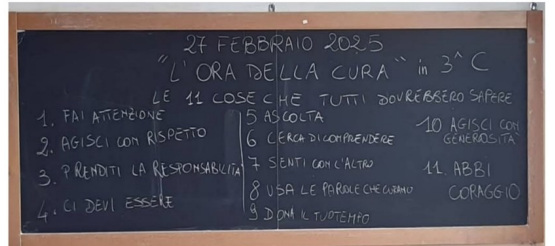 27 FEBBRAIO 2025
"L'ORA DELLA CURA" in 3^C
LE 11 COSE CHE TUTTI DOVREBBERO SAPERE
1. FAI ATTENZIONE
2. AGISCI CON RISPETTO
3. PRENDITI LA RESPONSABILITÀ
4. CI DEVI ESSERE
5 ASCOLTA
6 CERCA DI COMPRENDERE
7 SENTI CON L'ALTRO
8 USA LE PAROLE CHE CURANO
9 DONA IL TUO TEMPO
10 AGISCI CON
GENEROSITÀ
11. ABBI
CORAGGIO